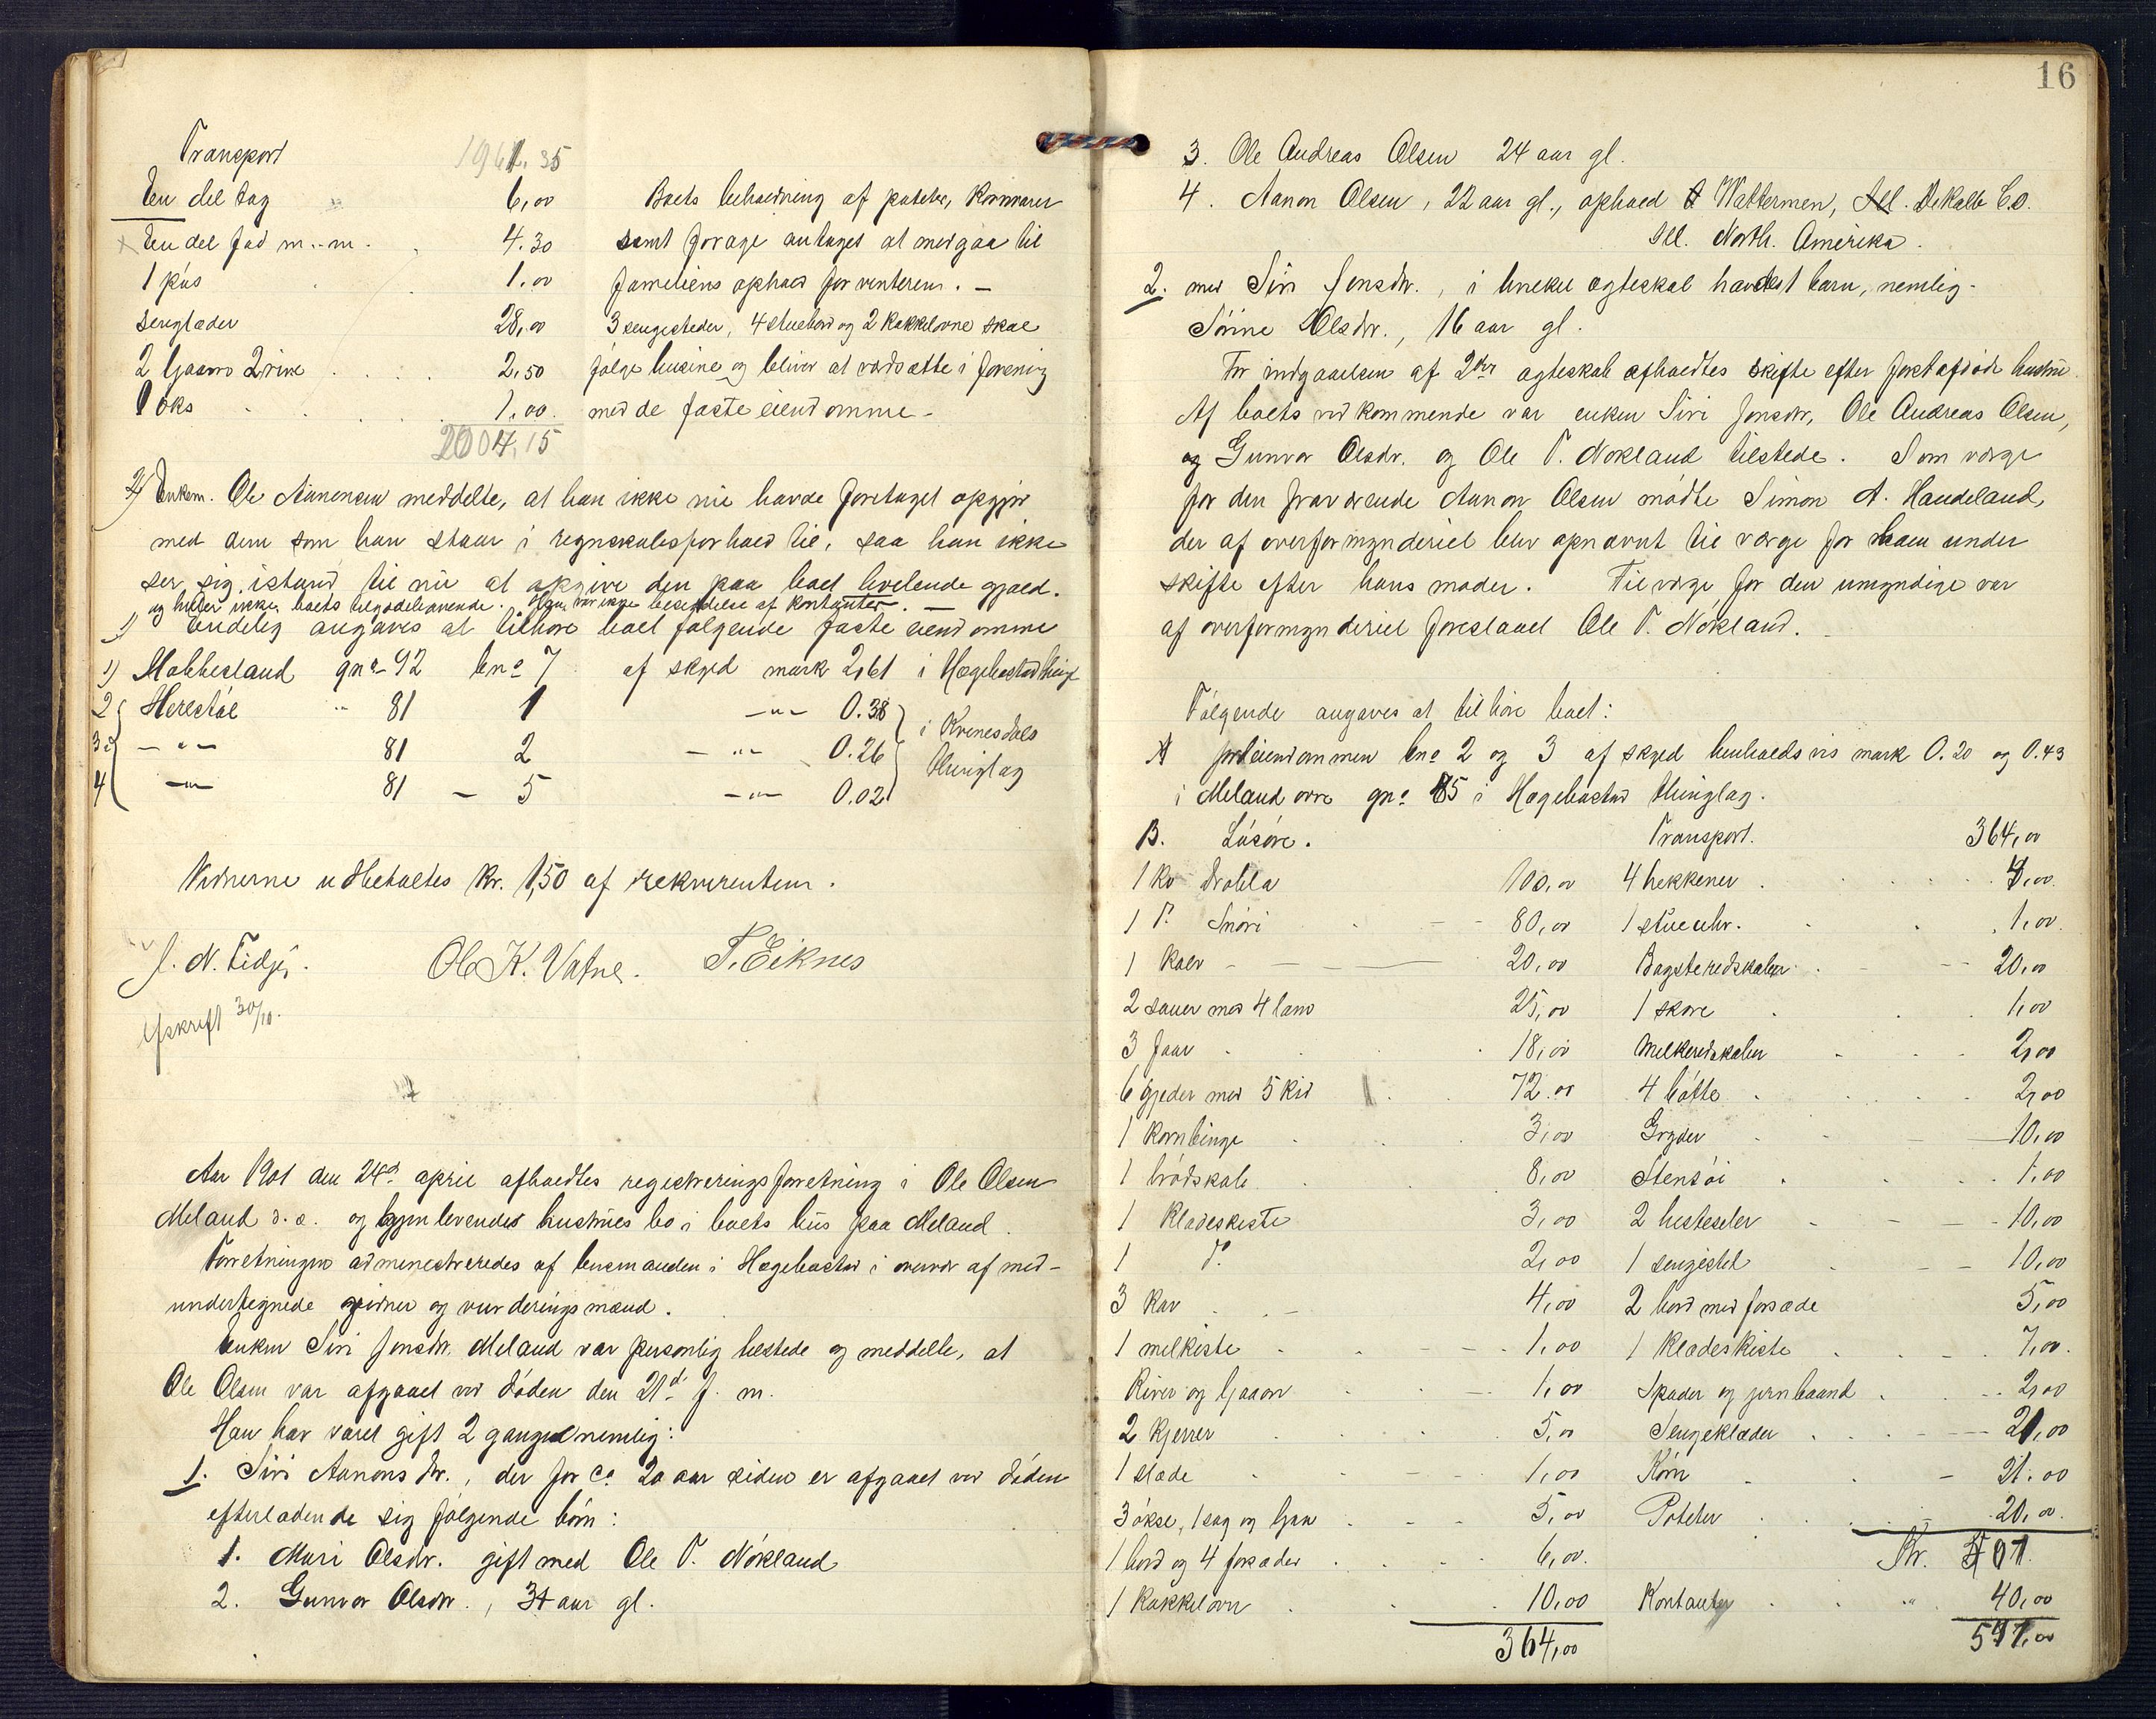 Transport 1961.35
En del tag 6,00
En del fad m.m. 4.30
1 pus 1.00
sengklæder 28,00
2 ljaaer 2 rive 2,50
1 øks 1,00
2004,15
Boets beholdning af poteter, kornvarer
samt forage antages at medgaa til
fameliens ophold for vinteren. –
3 sengesteder, 4 stuebord og 2 kakkelovne skal
følge husene og bliver at værdsætte i forening
med de faste eiendomme –
2) Enkem. Ole Aanensen meddelte, at han ikke nu havde foretaget opgjør
med dem som han staar i regnskabsforhold til, saa han ikke
ser sig istand til nu at opgive den paa boet hvilende gjæld.
og heller ikke boets tilgodehavende. Ligesaa var ikke besiddelse af kontanter. –
3) Endelig angaves at tilhøre boet følgende faste eiendomme
1) Mobbesland gno 92 bno 7 af skyld mark 2,61 i Hægebostad thingl
2 Herestøl " 81 1 –"– 0.38
3 –"– 81 2 –"– 0.26
4 –"– 81 – 5 –"– 0.02
i Kvinesdals
thinglag
Vidnerne udbetaltes kr. 1,50 af rekvirenten.
J. N. Tidjø. Ole K. Vatne. T. Eiknes
Afskrift 30/10.
Aar 1901 den 24de april afholdtes registreringsforretning i Ole Olsen
Meland d.æ. og gjenlevendes hustrues bo i boets hus paa Meland.
Forretningen administreredes af lensmanden i Hægebostad i overvær af med-
undertegnede vidner og vurderingsmænd.
Enken Siri Jonsdr. Meland var personlig tilstede og meddelte, at
Ole Olsen var afgaaet ved døden den 21d f. m.
Han har været gift 2 gange nemlig:
1. Siri Aanonsdr., der for ca 20 aar siden er afgaaet ved døden
efterladende sig følgende børn:
1. Mari Olsdr. gift med Ole T. Nökland
2. Gunvor Olsdr., 31 aar gl.
16
3. Ole Andreas Olsen 24 aar gl.
4. Aanon Olsen, 22 aar gl., ophold Wattermen, Ill. DeKalb Co.
Ill. North. Amerika.
2. med Siri Jonsdr., i hvilket ægteskab havdes 1 barn, nemlig –
Sörine Olsdr., 16 aar gl.
Før indgaaelsen af 2det ægteskab afholdtes skifte efter førstafdøde hustru.
Af boets vedkommende var enken Siri Jonsdr, Ole Andreas Olsen,
og Gunvor Olsdr. og Ole T. Nökland tilstede. Som værge
for den fraværende Aanon Olsen mødte Simon A. Haudeland,
der af overformynderiet blev opnævnt til værge for ham under
skifte efter hans moder. Til værge for den umyndige var
af overformynderiet foreslaaet Ole T. Nökland.
Følgende angaves at tilhøre boet:
A jordeiendommen bno 2 og 3 af skyld henholdsvis mark 0.20 og 0.43
i Meland øvre gno 85 i Hægebostad thinglag.
B. Løsøre.
1 ko Drobla 100,00
1 do Snöri 80,00
1 kalv 20,00
2 sauer med 4 lam 25,00
3 faar 18,00
6 gjeder med 5 kid 72.00
1 kornbinge 3,00
1 brødskab 8,00
1 klædeskiste 3,00
1 do 2,00
3 kar 4,00
1 melkiste 1,00
River og ljaaer 1,00
2 kjerrer 5,00
1 slæde 1,00
3 økse, 1 sag og ljaa 5,00
1 bord og 4 forsæder 6,00.
1 kakkelovn 10,00
364,00
Transport. 364,00
4 hekkener 4,00.
1 stueuhr. 1,00.
Bagsteredskaber 20,00
1 skore 1,00
Melkeredskaber 2,00
4 bøtte 2,00
Gryder 10,00
Stentøi 1.00
2 hesteseler 10,00
1 sengested 10,00
2 bord med forsæde 5,00
1 klædeskiste 7,00.
Spader og jernbaand 2,00
Sengeklæder 21,00
Korn 21.00
Poteter 20,00.
Kr. 501.
Kontanter 40,00
541,00